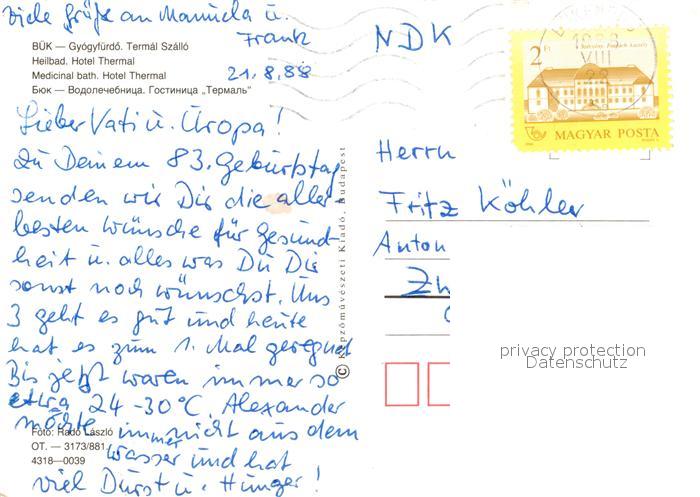 Viele Grüße an Manuela u.
Frank
BÜK — Gyógyfürdő. Termál Szálló
Heilbad. Hotel Thermal
Medicinal bath. Hotel Thermal
Бюк — Водолечебница. Гостиница „Термаль"
21.8.88
Lieber Vati u. Uropa!
Zu Deinem 83. Geburtstag
senden wir Dir die aller-
besten Wünsche für Gesund-
heit u. alles was Du Dir
sonst noch wünschst. Uns
3 geht es gut und heute
hat es zum 1. Mal geregnet
Bis jetzt waren immer so
etwa 24-30°C. Alexander
möchte immer nicht aus dem
Wasser und hat
viel Durst u. Hunger!
Fotó: Radó László
OT. — 3173/881
4318—0039
© Képzőművészeti Kiadó, Budapest
NDK
2 Ft
MAGYAR POSTA
1988
VIII
Herrn
Fritz Köhler
Anton
privacy protection
Datenschutz